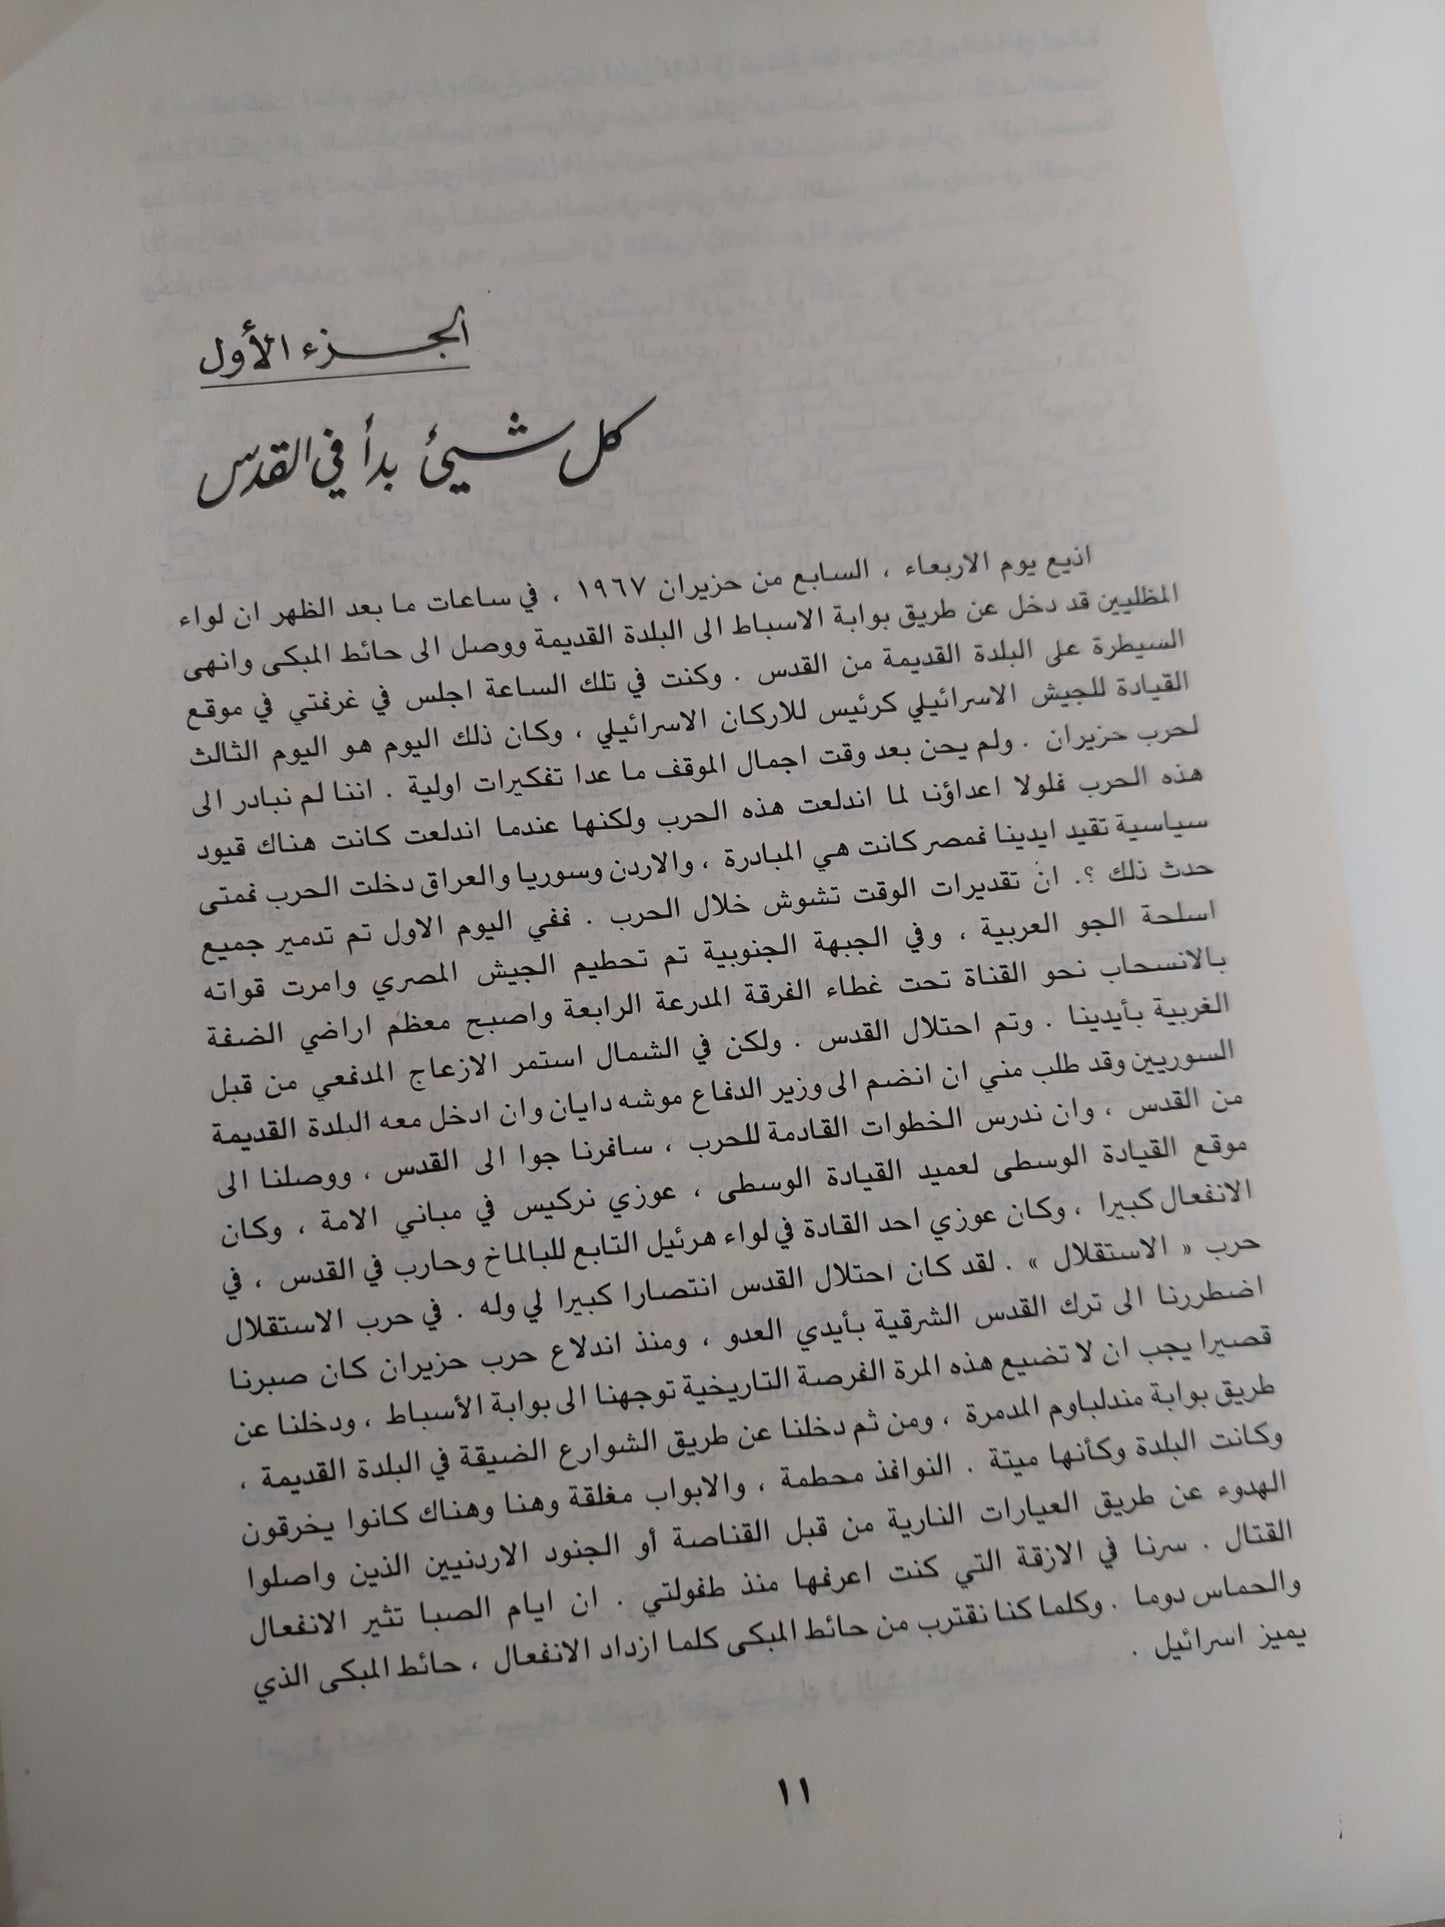 الجزء الأول
كل شيئ بدأ في القدس
اذيع يوم الاربعاء ، السابع من حزيران ١٩٦٧ ، في ساعات ما بعد الظهر ان لواء
المظليين قد دخل عن طريق بوابة الاسباط الى البلدة القديمة ووصل الى حائط المبكى وانهى
السيطرة على البلدة القديمة من القدس . وكنت في تلك الساعة اجلس في غرفتي في موقع
القيادة للجيش الاسرائيلي كرئيس للاركان الاسرائيلي ، وكان ذلك اليوم هو اليوم الثالث
لحرب حزيران . ولم يحن بعد وقت اجمال الموقف ما عدا تفكيرات اولية . اننا لم نبادر الى
هذه الحرب فلولا اعداؤنا لما اندلعت هذه الحرب ولكنها عندما اندلعت كانت هناك قيود
سياسية تقيد ايدينا فمصر كانت هي المبادرة ، والاردن وسوريا والعراق دخلت الحرب فمتى
حدث ذلك ؟. ان تقديرات الوقت تشوش خلال الحرب . ففي اليوم الاول تم تدمير جميع
اسلحة الجو العربية ، وفي الجبهة الجنوبية تم تحطيم الجيش المصري وامرت قواته
بالانسحاب نحو القناة تحت غطاء الفرقة المدرعة الرابعة واصبح معظم اراضي الضفة
الغربية بأيدينا . وتم احتلال القدس . ولكن في الشمال استمر الازعاج المدفعي من قبل
السوريين وقد طلب مني ان انضم الى وزير الدفاع موشه دايان وان ادخل معه البلدة القديمة
من القدس ، وان ندرس الخطوات القادمة للحرب ، سافرنا جوا الى القدس ، ووصلنا الى
موقع القيادة الوسطى لعميد القيادة الوسطى ، عوزي نركيس في مباني الامة ، وكان
الانفعال كبيرا ، وكان عوزي احد القادة في لواء هرئيل التابع للبالماخ وحارب في القدس ، في
حرب « الاستقلال » . لقد كان احتلال القدس انتصارا كبيرا لي وله . في حرب الاستقلال
اضطررنا الى ترك القدس الشرقية بأيدي العدو ، ومنذ اندلاع حرب حزيران كان صبرنا
قصيرا يجب ان لا تضيع هذه المرة الفرصة التاريخية توجهنا الى بوابة الأسباط ، ودخلنا عن
طريق بوابة مندلباوم المدمرة ، ومن ثم دخلنا عن طريق الشوارع الضيقة في البلدة القديمة ،
وكانت البلدة وكأنها ميتة . النوافذ محطمة ، والابواب مغلقة وهنا وهناك كانوا يخرقون
الهدوء عن طريق العيارات النارية من قبل القناصة أو الجنود الاردنيين الذين واصلوا
القتال . سرنا في الازقة التي كنت اعرفها منذ طفولتي . ان ايام الصبا تثير الانفعال
والحماس دوما . وكلما كنا نقترب من حائط المبكى كلما ازداد الانفعال ، حائط المبكى الذي
يميز اسرائيل .
١١